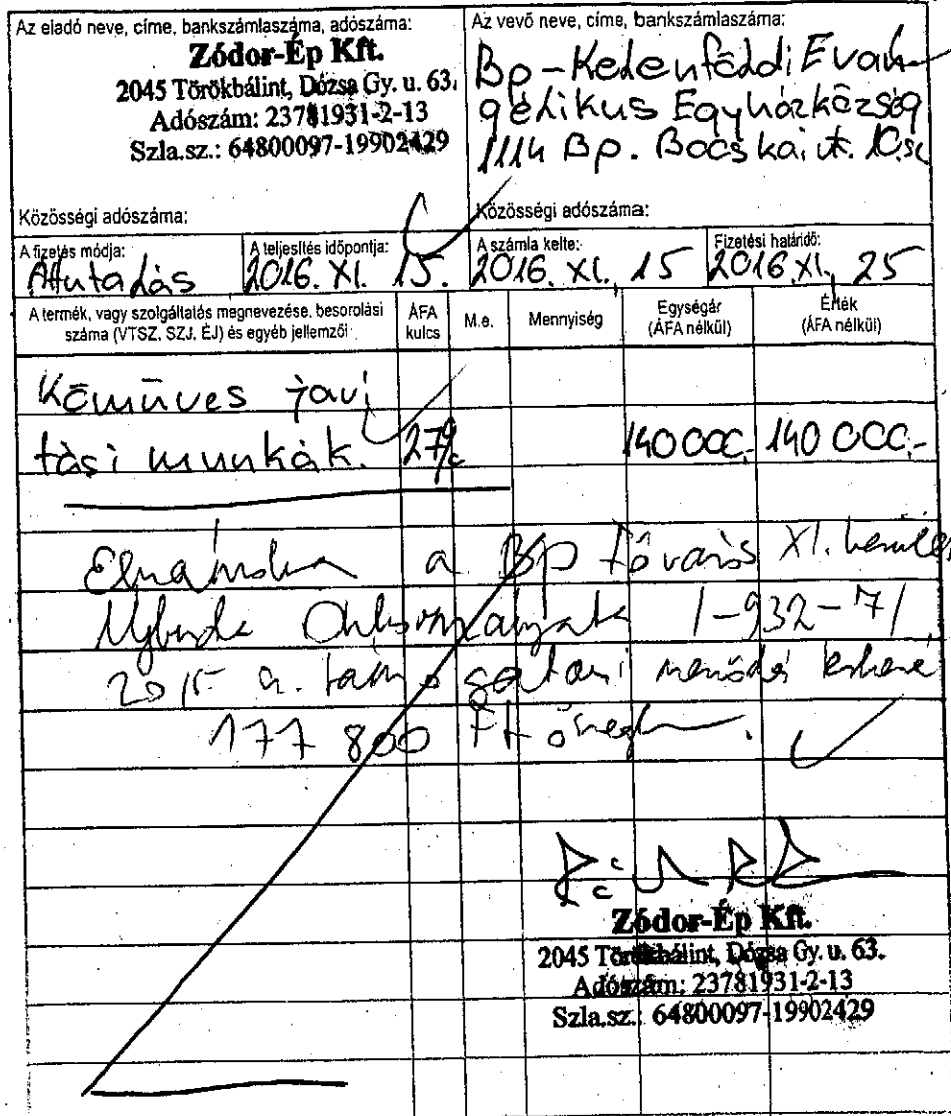 Az eladó neve, címe, bankszámlaszáma, adószáma:
Zódor-Ép Kft.
2045 Törökbálint, Dózsa Gy. u. 63.
Adószám: 23781931-2-13
Szla.sz.: 64800097-19902429
Közösségi adószáma:
Az vevő neve, címe, bankszámlaszáma:
Bp-Kelenföldi Evan-
gélikus Egyházközség
1114 Bp. Bocskai út. 10.sz
Közösségi adószáma:
A fizetés módja:
Átutalás
A teljesítés időpontja:
2016. XI. 15.
A számla kelte:
2016. XI. 15
Fizetési határidő:
2016. XI. 25
A termék, vagy szolgáltatás megnevezése, besorolási
száma (VTSZ, SZJ, ÉJ) és egyéb jellemzői
ÁFA
kulcs
M.e.
Mennyiség
Egységár
(ÁFA nélkül)
Érték
(ÁFA nélkül)
Kőműves javí
tási munkák. 27% 140 000,- 140 000.-
a Bp Főváros XI. kerület
Újbuda /-932-7/
2015
177 800 Ft
Zódor-Ép Kft.
2045 Törökbálint, Dózsa Gy. u. 63.
Adószám: 23781931-2-13
Szla.sz.: 64800097-19902429